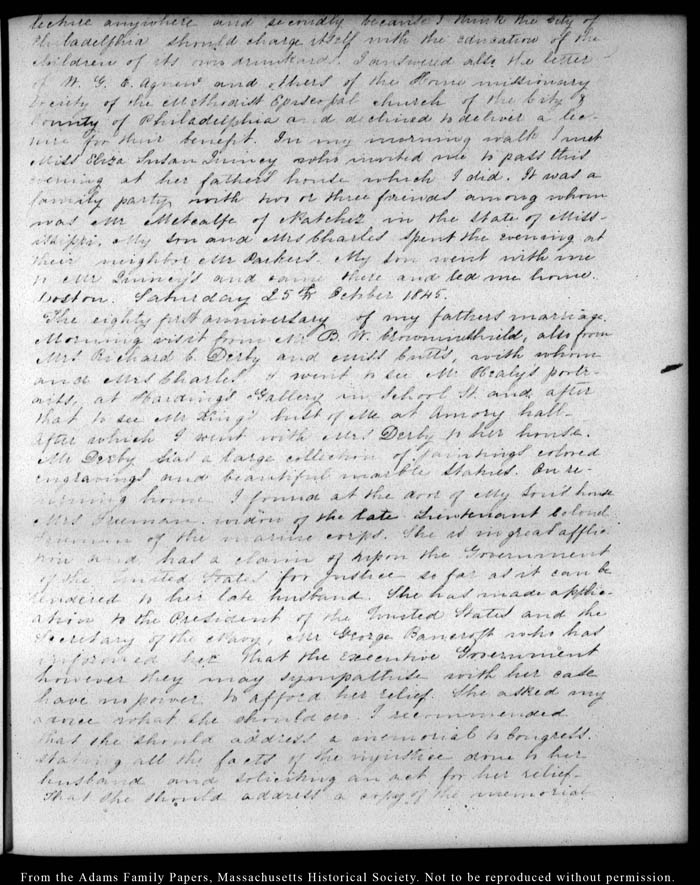 lecture anywhere and secondly because I think the City of
Philadelphia should charge itself with the education of the
children of its own drunkards. I answered also the letter
of W. G. E. Agnew and others of the Home missionary
Society of the Methodist Episcopal church of the City &
County of Philadelphia and declined to deliver a lec-
ture for their benefit. In my morning walk I met
Miss Eliza Susan Quincy who invited me to pass this
evening at her fathers house which I did. It was a
family party with two or three friends among whom
was Mr Metcalfe of Natchez in the state of Miss-
issippi. My son and Mrs Charles spent the evening at
their neighbor Mr Parkers. My son went with me
to Mr Quincy's and came there and led me home.
Boston. Saturday 25th October 1845.
The eighty first anniversary of my fathers marriage.
Morning visit from Mr B. W. Crowninshield, also from
Mrs Richard C. Derby and Miss Cutts, with whom
and Mrs Charles I went to see Mr Healy's portr-
aits, at Harding's Gallery in School St. and after
that to see Mr King's bust of Me at Amory hall.
After which I went with Mrs Derby to her house.
Mr Derby has a large collection of paintings colored
engravings and beautiful marble statues. On re-
turning home I found at the door of My Son's house
Mrs Freeman widow of the late Lieutenant Colonel
Freeman of the marine corps. She is in great afflic-
tion and has a claim of upon the Government
of the United States for justice so far as it can be
rendered to her late husband. She has made applic-
ation to the President of the United States and the
Secretary of the Navy, Mr George Bancroft who has
informed her that the Executive Government
however they may sympathise with her case
have no power to afford her relief. She asked my
advice what she should do. I recommended
that she should address a memorial to Congress.
stating all the facts of the injustice done to her
husband and soliciting an act for her relief.
That she should address a copy of the memorial
From the Adams Family Papers, Massachusetts Historical Society. Not to be reproduced without permission.